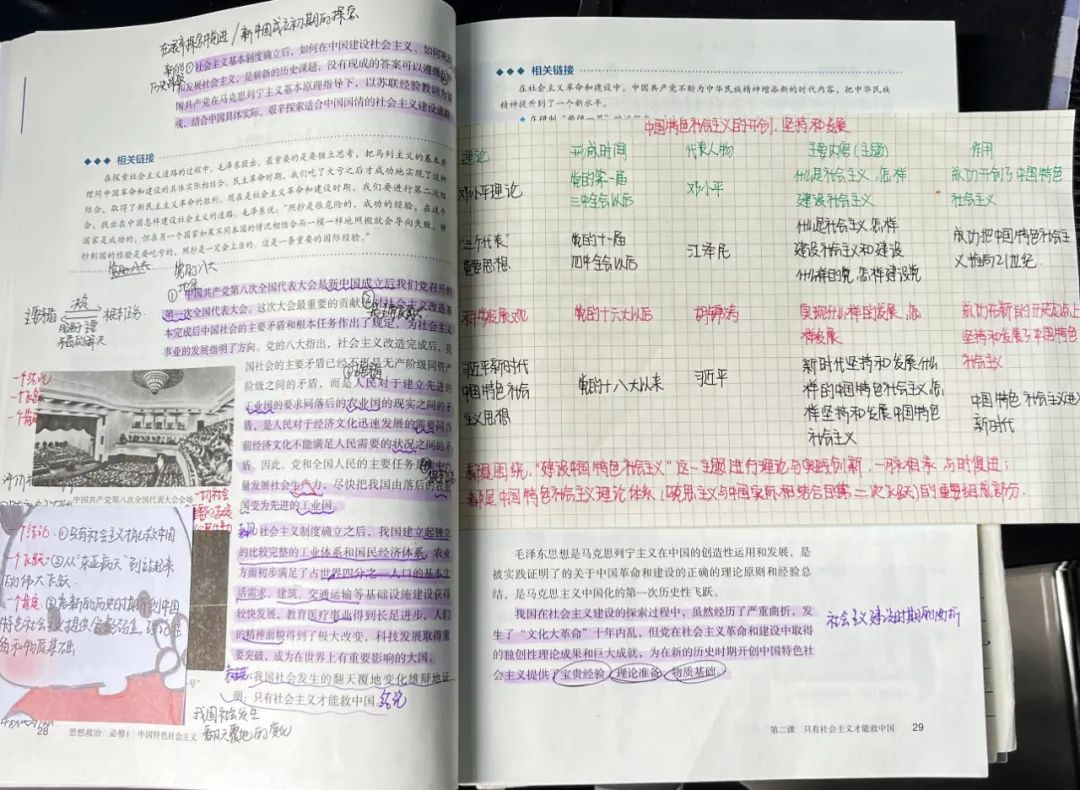 在艰辛探索中前进/新中国成立初期的探索
①社会主义基本制度确立后,如何在中国建设社会主义、如何巩固
和发展社会主义,是崭新的历史课题,没有现成的答案可以遵循。
国共产党在马克思列宁主义基本原理指导下,以苏联经验教训为鉴
戒,结合中国具体实际,艰辛探索适合中国国情的社会主义建设道路。
相关链接
在探索社会主义道路的过程中,毛泽东提出,最重要的是要独立思考,把马列主义的基本原
理同中国革命和建设的具体实际相结合。民主革命时期,我们吃了大亏之后才成功地实现了这种
结合,取得了新民主主义革命的胜利。现在是社会主义革命和建设时期,我们要进行第二次结
合,找出在中国怎样建设社会主义的道路。毛泽东说:“照抄是很危险的,成功的经验,在这个
国家是成功的,但在另一个国家如果不同本国的情况相结合而一模一样地照搬就会导向失败。照
抄别国的经验是要吃亏的,照抄是一定会上当的。这是一条重要的国际经验。”
党的八大
①中国共产党第八次全国代表大会是新中国成立后我们党召开的
第一次全国代表大会。这次大会最重要的贡献是对社会主义改造基
本完成后中国社会的主要矛盾和根本任务作出了规定,为社会主义
事业的发展指明了方向。党的八大指出,社会主义改造完成后,我
国社会的主要矛盾已经不再是无产阶级同资产
阶级之间的矛盾,而是人民对于建立先进的
工业国的要求同落后的农业国的现实之间的矛
盾,是人民对于经济文化迅速发展的需要同当
前经济文化不能满足人民需要的状况之间的矛
盾。因此,党和全国人民的主要任务是集中力
量发展社会生产力,尽快把我国由落后的农业
国变为先进的工业国。
主要矛盾
决定
根本任务
一个结论
一个飞跃
一个肯定
中国共产党第八次全国代表大会会场
一个结论:①只有社会主义才能救中国
一个飞跃:②从“东亚病夫”到站起来
的伟大飞跃
一个肯定:③为新的历史时期开创中国
特色社会主义提供宝贵经验,理论准
备和物质基础
社会主义制度确立之后,我国建立起独立
的比较完整的工业体系和国民经济体系。农业
方面初步满足了占世界四分之一人口的基本生
活需求,建筑、交通运输等基础设施建设获得
较快发展,教育医疗事业得到长足进步,人们
的精神面貌得到了极大改变,科技发展取得重
要突破,成为在世界上有重要影响的大国。
我国社会发生的翻天覆地变化雄辩地证
明:只有社会主义才能救中国。结论
我国社会发生
翻天覆地的变化
28 思想政治 必修1 中国特色社会主义
相关链接
在社会主义革命和建设中,中国共产党不断为中华民族精神增添新的时代内容,把中华民族
精神提升到了一个新水平。
中国特色社会主义的开创、坚持和发展
理论 形成时间 代表人物 主要内容(主题) 作用
邓小平理论 党的第一届三中全会以后 邓小平 什么是社会主义,怎样建设社会主义 成功开创了中国特色社会主义
“三个代表”重要思想 党的十一届四中全会以后 江泽民 什么是社会主义怎样建设社会主义和建设什么样的党,怎样建设党 成功把中国特色社会主义推向21世纪.
科学发展观 党的十六大以后 胡锦涛 实现什么样的发展,怎样发展 成功在新的历史起点上坚持和发展了中国特色社会主义
习近平新时代中国特色社会主义思想 党的十八大以来 习近平 新时代坚持和发展什么样的中国特色社会主义,怎样坚持和发展中国特色社会主义 中国特色社会主义进入新时代
都是围绕“建设中国特色社会主义”这一主题进行理论与实践创新,一脉相承,与时俱进;
都是中国特色社会主义理论体系(马克思主义与中国实际相结合的第二次飞跃)的重要组成部分.
毛泽东思想是马克思列宁主义在中国的创造性运用和发展,是
被实践证明了的关于中国革命和建设的正确的理论原则和经验总
结,是马克思主义中国化的第一次历史性飞跃。
我国在社会主义建设的探索过程中,虽然经历了严重曲折,发
生了“文化大革命”十年内乱,但党在社会主义革命和建设中取得
的独创性理论成果和巨大成就,为在新的历史时期开创中国特色社
会主义提供了宝贵经验、理论准备、物质基础。
社会主义建设时期的曲折
第二课 只有社会主义才能救中国 29